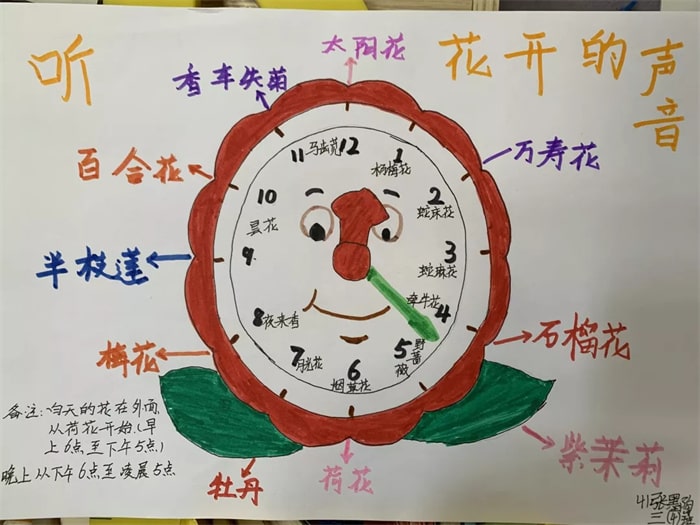 听
花开的声音
太阳花
香车失菊
万寿花
百合花
半枝莲
石榴花
梅花
紫茉莉
牡丹
荷花
12
1 杨梅花
2 蛇床花
3 蛇麻花
4 牵牛花
5 野蔷薇
6 烟草花
7 月光花
8 夜来香
9
10 昙花
11 马齿苋
备注:白天的花在外面,
从荷花开始(早
上6点至下午5点)
晚上从下午6点至凌晨5点